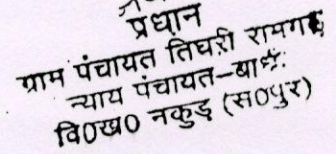 प्रधान
ग्राम पंचायत तिघरी रामगढ़
न्याय पंचायत-
वि0ख0 नकुड़ (स0पुर)